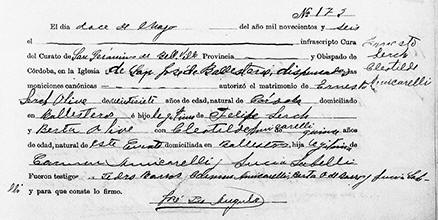 Nº 173
El día doce de Mayo del año mil novecientos y seis
el infrascripto Cura
del Curato de San Gerónimo de Bell Ville Provincia y Obispado de
Córdoba, en la Iglesia de San José de Ballesteros, dispensadas
moniciones canónicas autorizó el matrimonio de Ernesto
Serch Olive de veintisiete años de edad, natural de Córdoba domiciliado
en Ballesteros é hijo legítimo de Felipe Serch
y Berta Olive con Cleotilde Amicarelli quince
años de edad, natural de este Curato domiciliada en Ballesteros hija legítima de
Carmen Amicarelli y Lucia
Fueron testigos Pedro Barros
y para que conste lo firmo.
José D. Angulo
Ernesto
Serch
Cleotilde
Amicarelli